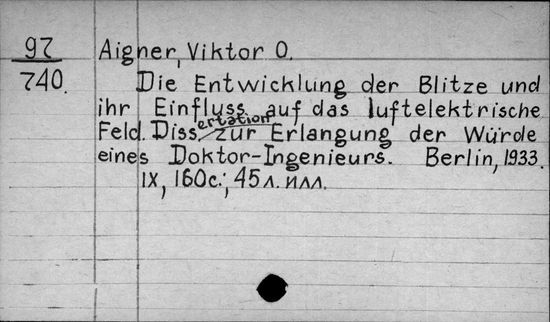 97
740.
Aigner, Viktor O.
Die Entwicklung der Blitze und
ihr Einfluss auf das luftelektrische
Feld. Dissertation zur Erlangung der Würde
eines Doktor-Ingenieurs. Berlin, 1933.
IX, 160с.; 45л. илл.